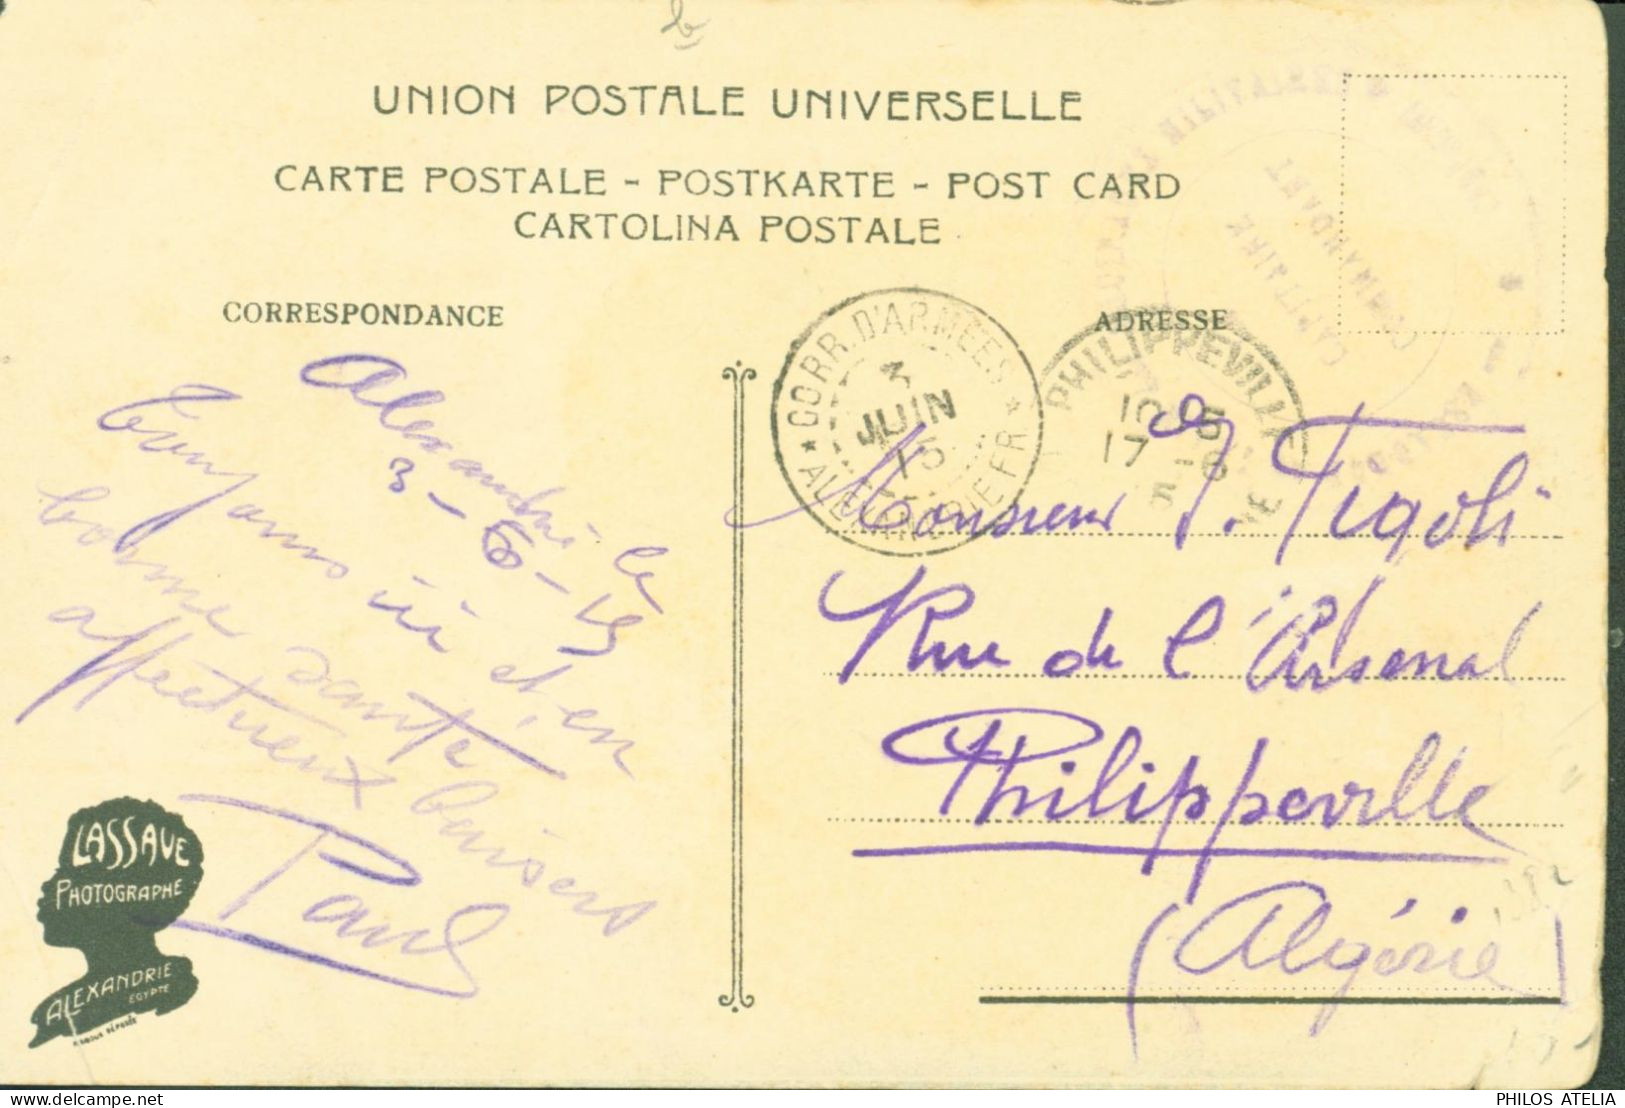 UNION POSTALE UNIVERSELLE
CARTE POSTALE - POSTKARTE - POST CARD
CARTOLINA POSTALE
CORRESPONDANCE
ADRESSE
CORR. D'ARMEES
3
JUIN
15
ALEXANDRIE FR
PHILIPPEVILLE
17 -6
CAPITAINE
COMMANDANT
Alexandrie le
3-6-15
Toujours ici et en
bonne santé
affectueux baisers
Paul
Monsieur J. Tigoli
Rue de l'Arsenal
Philippeville
(Algérie)
LASSAVE
PHOTOGRAPHE
ALEXANDRIE
EGYPTE
https://www.delcampe.net
PHILOS ATELIA